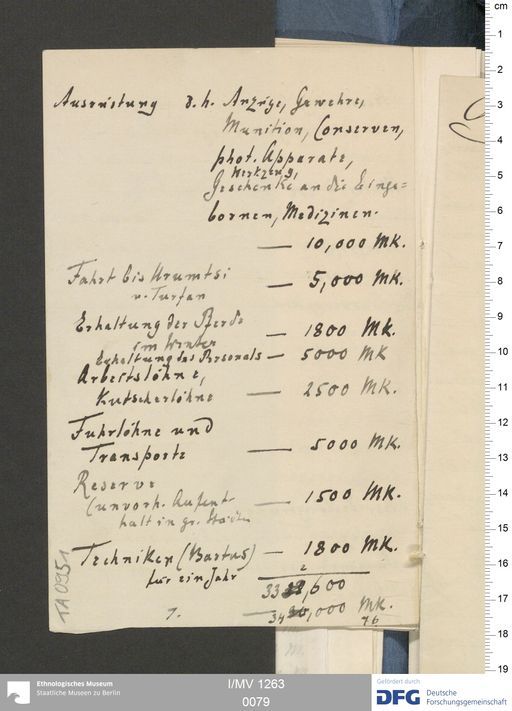 Ausrüstung d. h. Anzüge, Gewehre,
Munition, Conserven,
phot. Apparate,
Werkzeug,
Geschenke an die Einge=
bornen, Medizinen.
— 10,000 Mk.
Fahrt bis Urumtsi — 5,000 Mk.
u. Turfan
Erhaltung der Pferde — 1800 Mk.
im Winter
Erhaltung des Personals — 5000 Mk
Arbeitslöhne,
Kutscherlöhne — 2500 Mk.
Fuhrlöhne und
Transporte — 5000 Mk.
Reserve
(unvorh. Aufent- — 1500 Mk.
halt in gr. Städten
Techniker (Bartus) — 1800 Mk.
für ein Jahr
33 ,600
7. — 34 ,000 Mk.
76
TA 0951
cm
1
2
3
4
5
6
7
8
9
10
11
12
13
14
15
16
17
18
19
Ethnologisches Museum
Staatliche Museen zu Berlin
I/MV 1263
0079
Gefördert durch
DFG Deutsche
Forschungsgemeinschaft